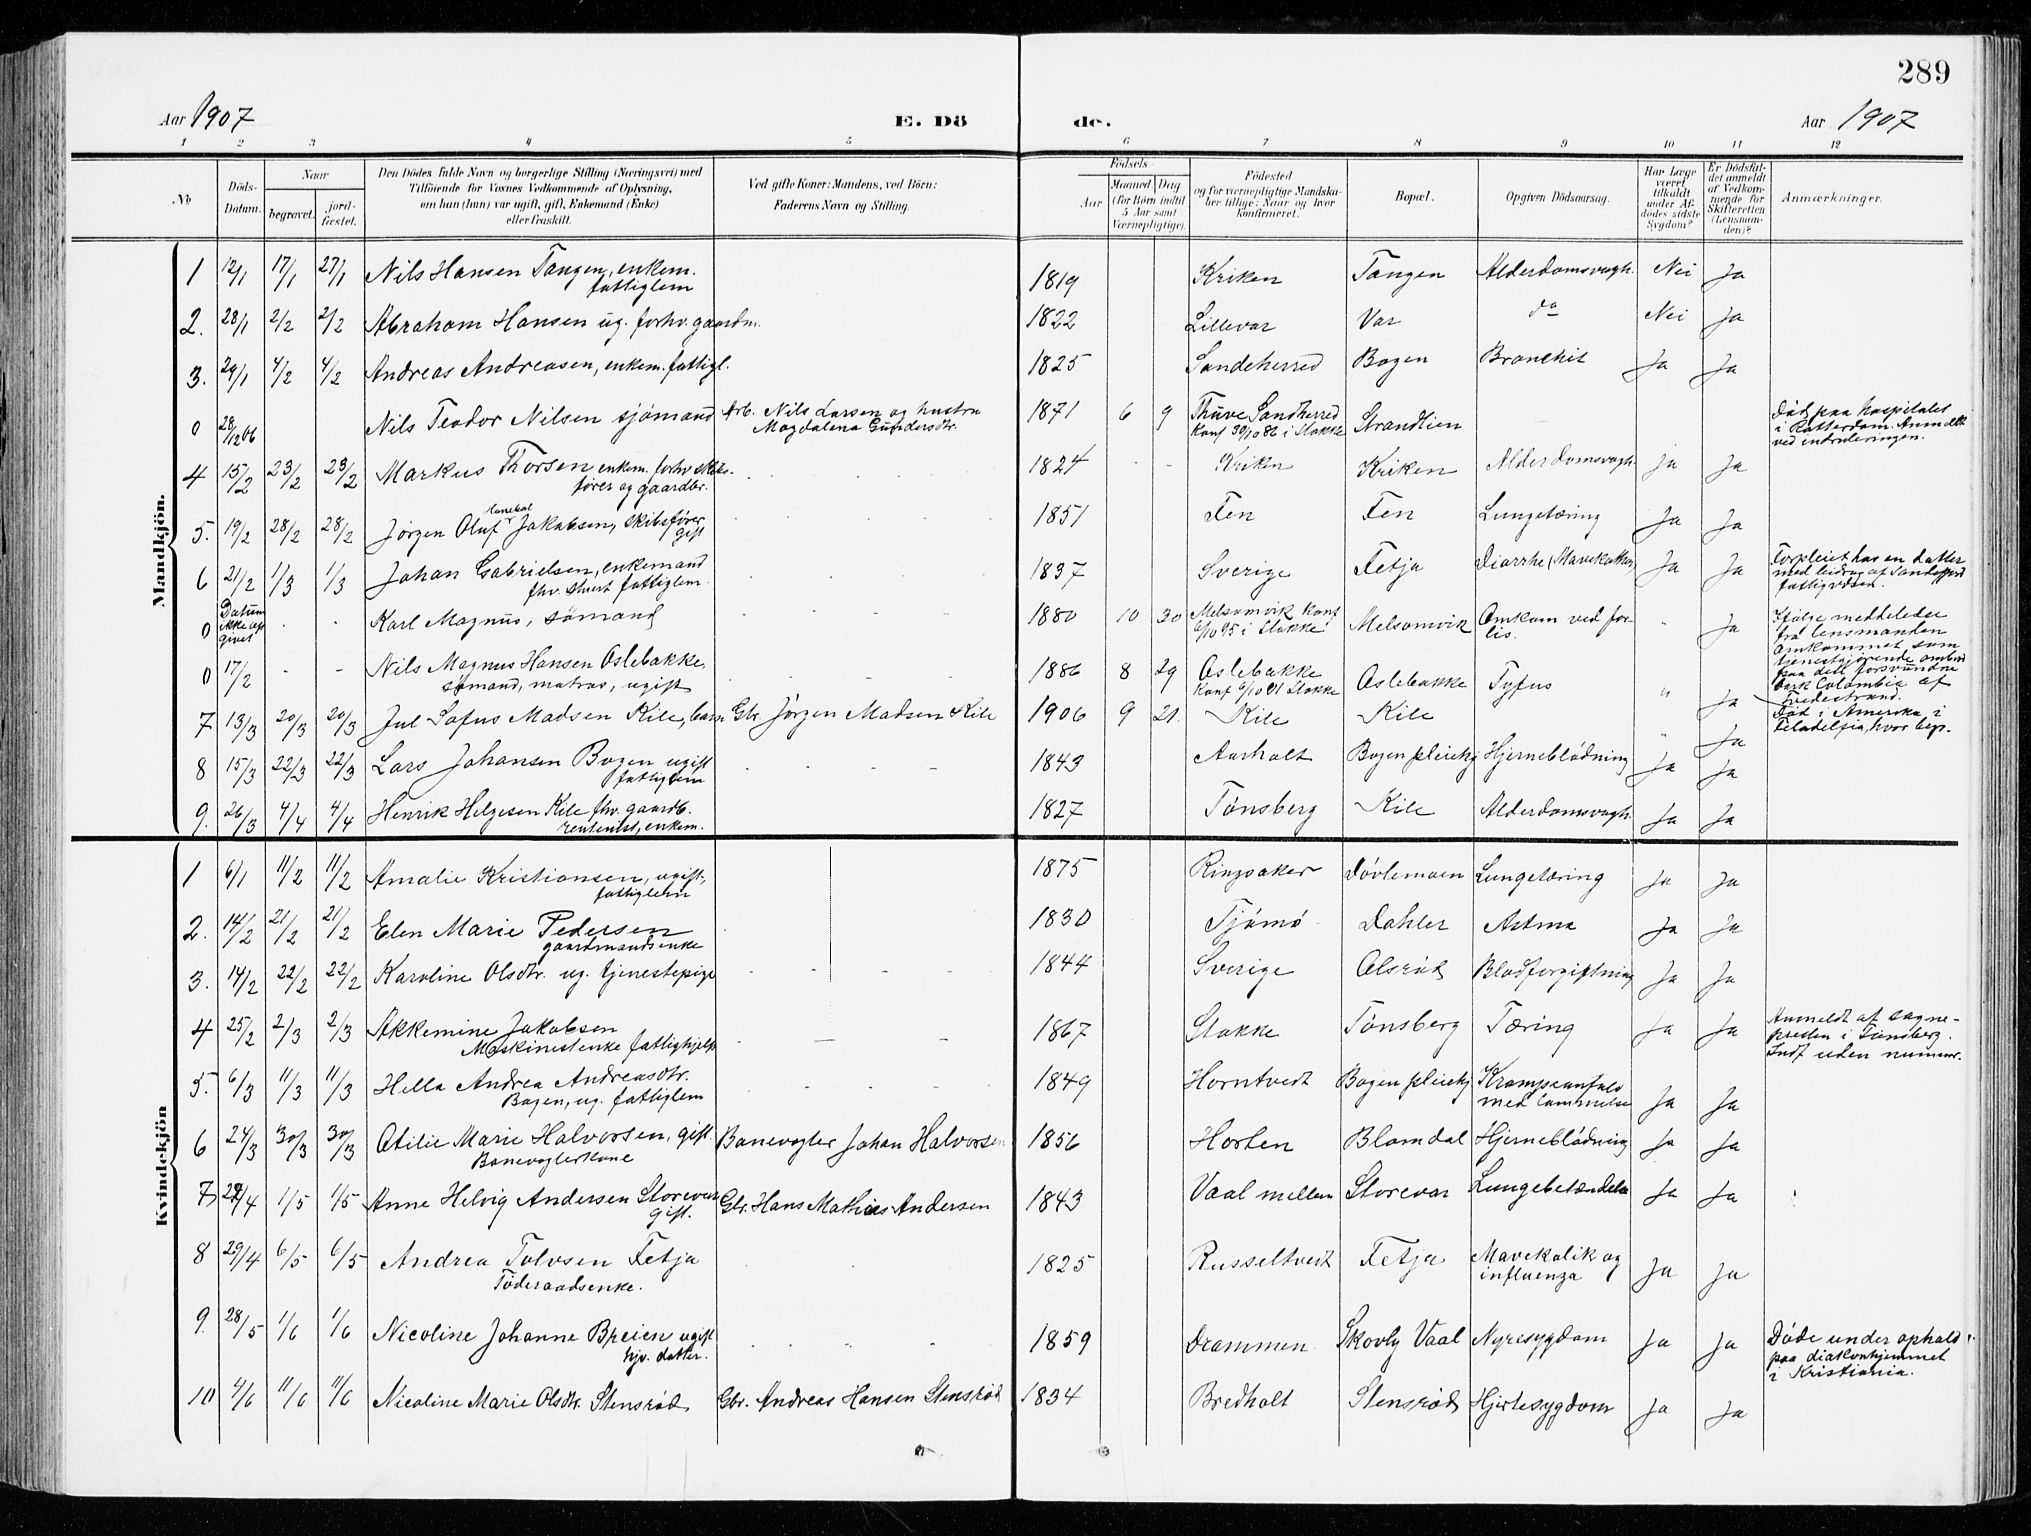 289
Aar 1907 E. Dö de. Aar 1907
1 2 3 4 5 6 7 8 9 10 11 12
№ Döds-Datum. Naar begravet. jord-fæstet. Den Dödes fulde Navn og borgerlige Stilling (Næringsvei) med Tilföiende for Voxnes Vedkommende af Oplysning, om han (hun) var ugift, gift, Enkemand (Enke) eller fraskilt. Ved gifte Koner: Mandens, ved Börn: Faderens Navn og Stilling. Födsels- Aar Maaned Dag (for Börn indtil 5 Aar samt Værnepligtige). Födested og for værnepligtige Mandskaber tillige: Naar og hvor konfirmeret. Bopæl. Opgiven Dödsaarsag. Har Læge været tilkaldt under Afdödes sidste Sygdom? Er Dödsfaldet anmeldt af Vedkommende for Skifteretten (Lensmanden)? Anmærkninger.
Mandkjön.
1 12/1 17/1 27/1 Nils Hansen Tangen, enkem. fattiglem 1819 Kriken Tangen Alderdomsvagh. Nei Ja
2. 28/1 2/2 2/2 Abraham Hansen ug. forhv. gaardm. 1822 Lillevar Var do Nei Ja
3. 29/1 4/2 4/2 Andreas Andreasen, enkem. fattigl. 1825 Sandeherred Bogen Bronchit Ja Ja
0 28/12 06 Nils Teodor Nilsen sjømand Arb. Nils Larsen og hustru Magdalena Gundersdtr. 1871 6 9 Thuve Sandherred Konf 30/10 86 i Stokke Strandlien Død paa hospitalet i Rotterdam. Anmeldt ved indrulleringen.
4 15/2 23/2 23/2 Markus Thorsen enkem. forhv skibsfører og gaardbr. 1824 Kriken Kriken Alderdomsvagh. Ja Ja
5. 19/2 28/2 28/2 Jørgen Oluf Jakobsen, skibsfører, gift 1851 Fen Fen Lungetæring Ja Ja
6 21/2 1/3 1/3 Johan Gabrielsen, enkemand fhv. stuert fattiglem 1837 Sverige Fetja Diarrhe (Mavekatarr) Ja Ja Forpleiet hos en datter med bidrag af Sandefjord fattigvæsen.
0 Datum ikke opgivet Karl Magnus, sømand 1880 10 30 Melsomvik Konf 6/10 95 i Stokke Melsomvik Omkom ved forlis. " Ja Ifølge meddelelse fra lensmanden omkommet som tjenestgjørende ombord paa det forsvundne bark Colombia af Tvedestrand.
0 17/2 - - Nils Magnus Hansen Oslebakke, sømand, matros, ugift 1886 8 29 Oslebakke Konf 6/10 01 Stokke Oslebakke Tyfus " Ja Død i Amerika i Filadelfia, hvor begr.
7 13/3 20/3 20/3 Jul Sofus Madsen Kile, barn Gbr. Jørgen Madsen Kile 1906 9 21. Kile Kile " Ja
8 15/3 22/3 22/3 Lars Johansen Bogen ugift fattiglem 1843 Aarholt Bogen pleiehj Hjerneblødning Ja Ja
9. 26/3 4/4 4/4 Henrik Helgesen Kile fhv. gaardb. rentenist, enkem. 1827 Tønsberg Kile Alderdomsvagh. Ja Ja
Kvindekjön
1 6/1 11/2 11/2 Amalie Kristiansen, ugift, fattiglem 1875 Ringsaker Døvlemoen Lungetæring Ja Ja
2. 14/2 21/2 21/2 Elen Marie Pedersen gaardmandsenke 1830 Tjømø Dahler Astma Ja Ja
3. 14/2 22/2 22/2 Karoline Olsdtr. ug. tjenestepige 1844 Sverige Olsrød Blodforgiftning Ja Ja
4 25/2 2/3 2/3 Akkemine Jakobsen Maskinestenke fattighjelp 1867 Stokke Tønsberg Tæring Ja Ja Anmeldt af sognepresten i Tønsberg. Indf uden nummer.
5. 6/3 11/3 11/3 Hella Andrea Andreasdtr. Bogen, ug. fattiglem 1849 Horntvedt Bogen pleiehj Krampeanfald med lammelse Ja Ja
6 24/3 30/3 30/3 Otilie Marie Halvorsen, gift. Banevogterkone Banevogter Johan Halvorsen 1856 Horten Blomdal Hjerneblødning Ja Ja
7 /4 1/5 1/5 Anne Helvig Andersen Storevar gift. Gbr. Hans Mathias Andersen 1843 Vaal mellem Storevar Lungebetændelse Ja Ja
8 29/4 6/5 6/5 Andrea Tolvsen Fetja Føderaadsenke. 1825 Russeltvedt Fetja Mavekolik og influenza Ja Ja
9. 28/5 1/6 1/6 Nicoline Johanne Breien ugift hjv. datter. 1859 Drammen Skovly Vaal Nyresygdom Ja Ja Døde under ophold paa diakonhjemmet i Kristiania.
10 4/6 11/6 11/6 Nicoline Marie Olsdtr Stensrød Gbr. Andreas Hansen Stensrød 1834 Bredholt Stensrød Hjertesygdom Ja Ja